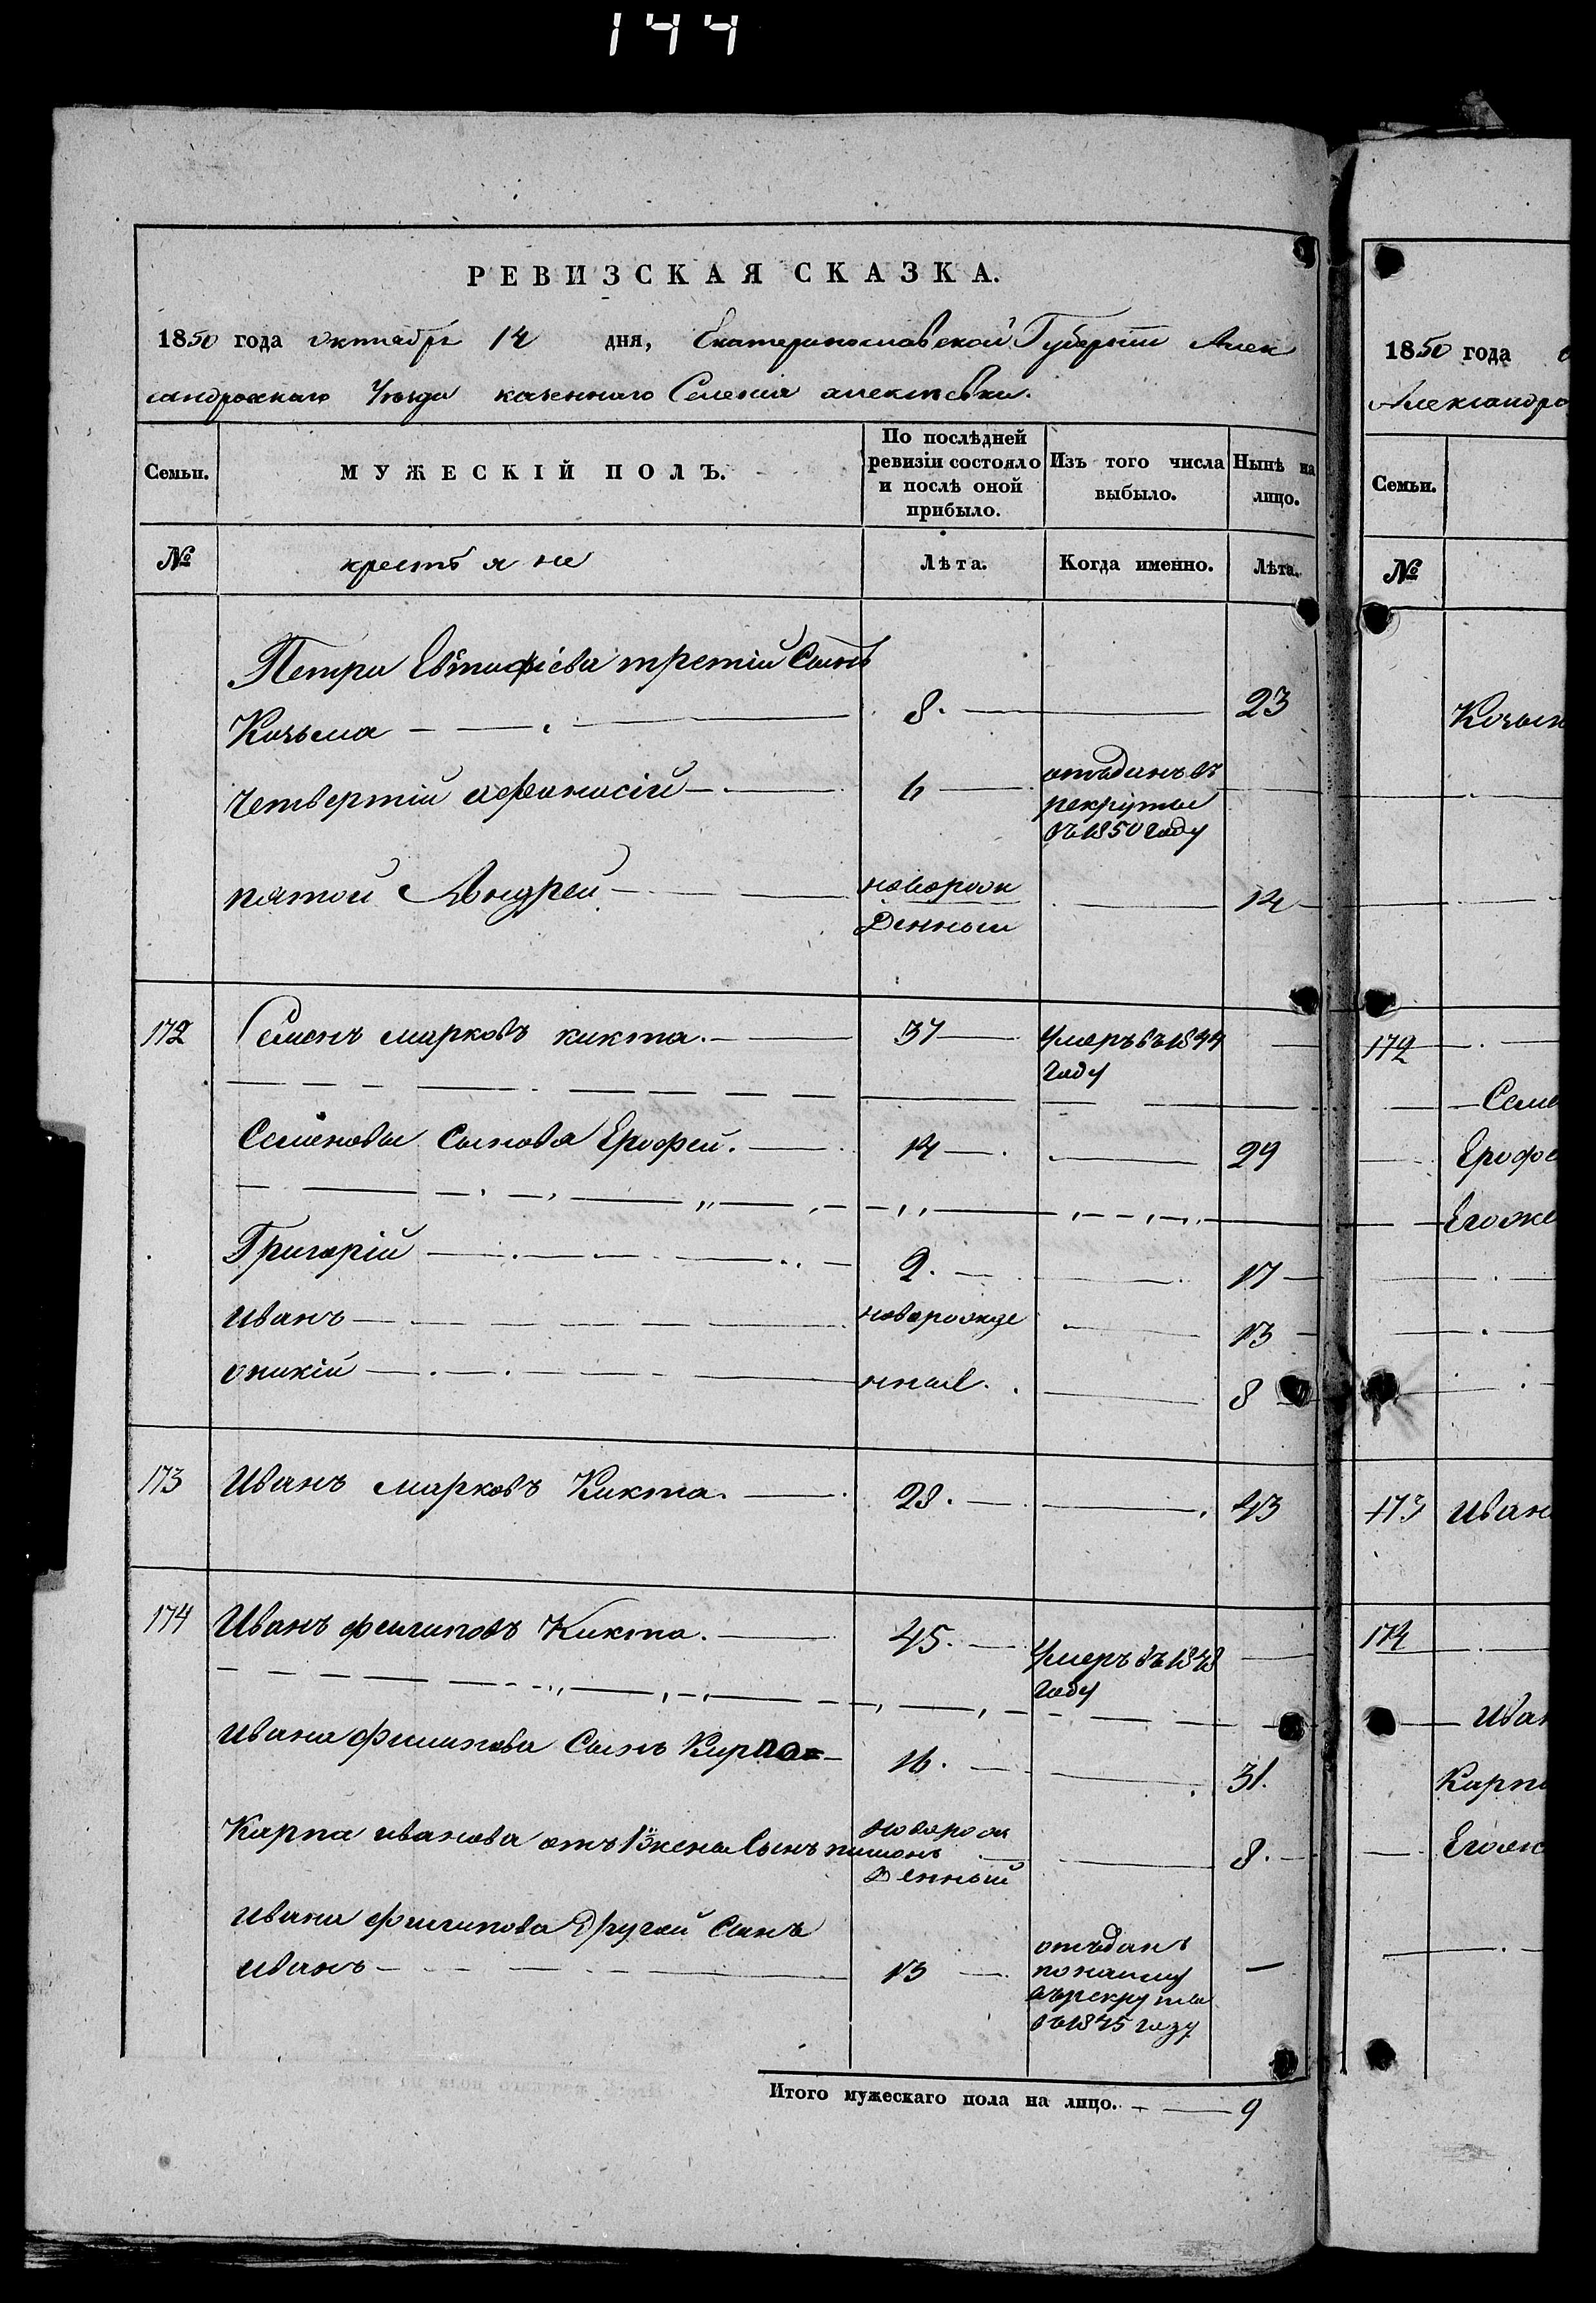 144
РЕВИЗСКАЯ СКАЗКА.
1850 года октября 14 дня, Екатеринославской Губерніи Алек
сандровскаго Уѣзда казеннаго Селенія алексѣевки.
Семьи. МУЖЕСКІЙ ПОЛЪ. По послѣдней ревизіи состояло и послѣ оной прибыло. Изъ того числа выбыло. Нынѣ на лицо.
№ крестьяне Лѣта. Когда именно. Лѣта.
Петра Евтифіева третіи Сынъ
Козьма 8. 23
четвертіи афанасій 6 отъданъ въ
рекруты
въ 1850 году
пятой Андрей новорож 14
Денныи
172 Семенъ марковъ кикта. 37 Умеръ въ 1844
Году
Семеновы Сыновя Ерофеи. 14 29
Григорій 2. 17
иванъ новорожде 13
оникій нные. 8
173 Иванъ марковъ Кикта. 28. 43
174 Иванъ филиповъ Кикта. 45. Умеръ въ 1848
Году
ивана филипова Сынъ Карпо 16. 31.
Карпа иванова отъ 1й жены Сынъ пимонъ новорож 8.
Денный
ивана филипова Другой Сынъ
иванъ 13 отъданъ
понайму
въ рекруты
въ 1845 году
Итого мужескаго пола на лицо. 9
1850 года
Александро
Семьи.
№
Козьм
172
Семе
Ерофе
Егоже
173 Иван
174
Иван
Карп
Егож